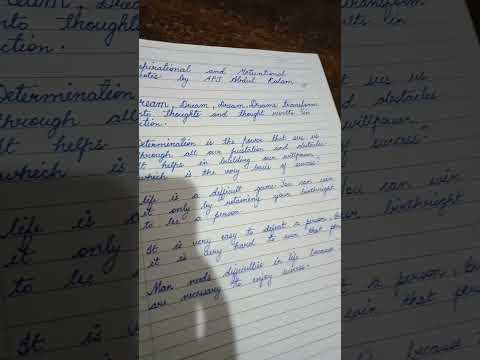 spirational and Motivational
otes by APJ Abdul Kalam
ream, Dream, Dream. Dreams transform
to thoughts and thought results in
ction.
Determination is the power that see us
through all our frustation and obstacles
It helps in building our willpower
which is the very basis of success.
life is a difficult game. You can win
it only by retaining your birthright
to be a person
It is very easy to defeat a person, but
it is very hard to win that per
Man needs difficulties in life because
are necessary to enjoy success.